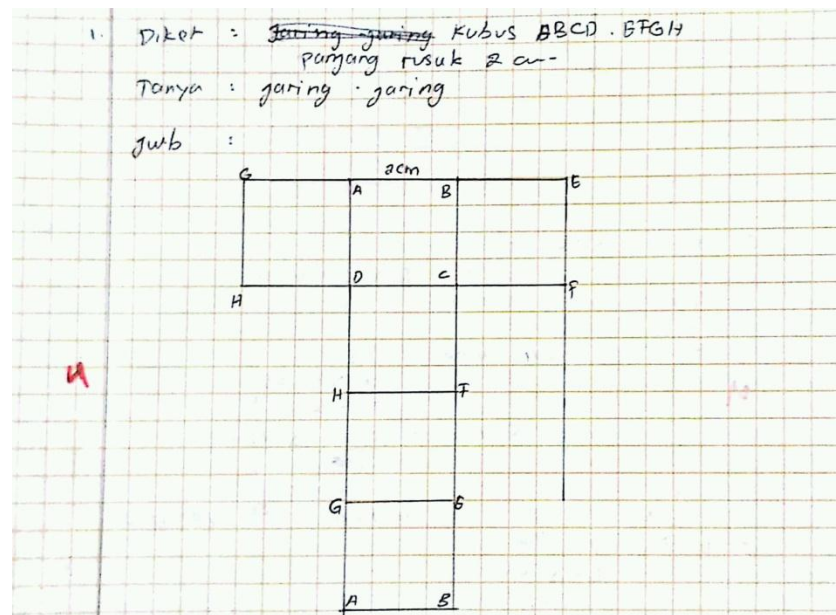 1. Diket : Jaring-jaring Kubus ABCD.EFGH
panjang rusuk 2 cm
Tanya : jaring - jaring
Jwb :
G A 2cm B E
H D C F
H F
G E
A B
4